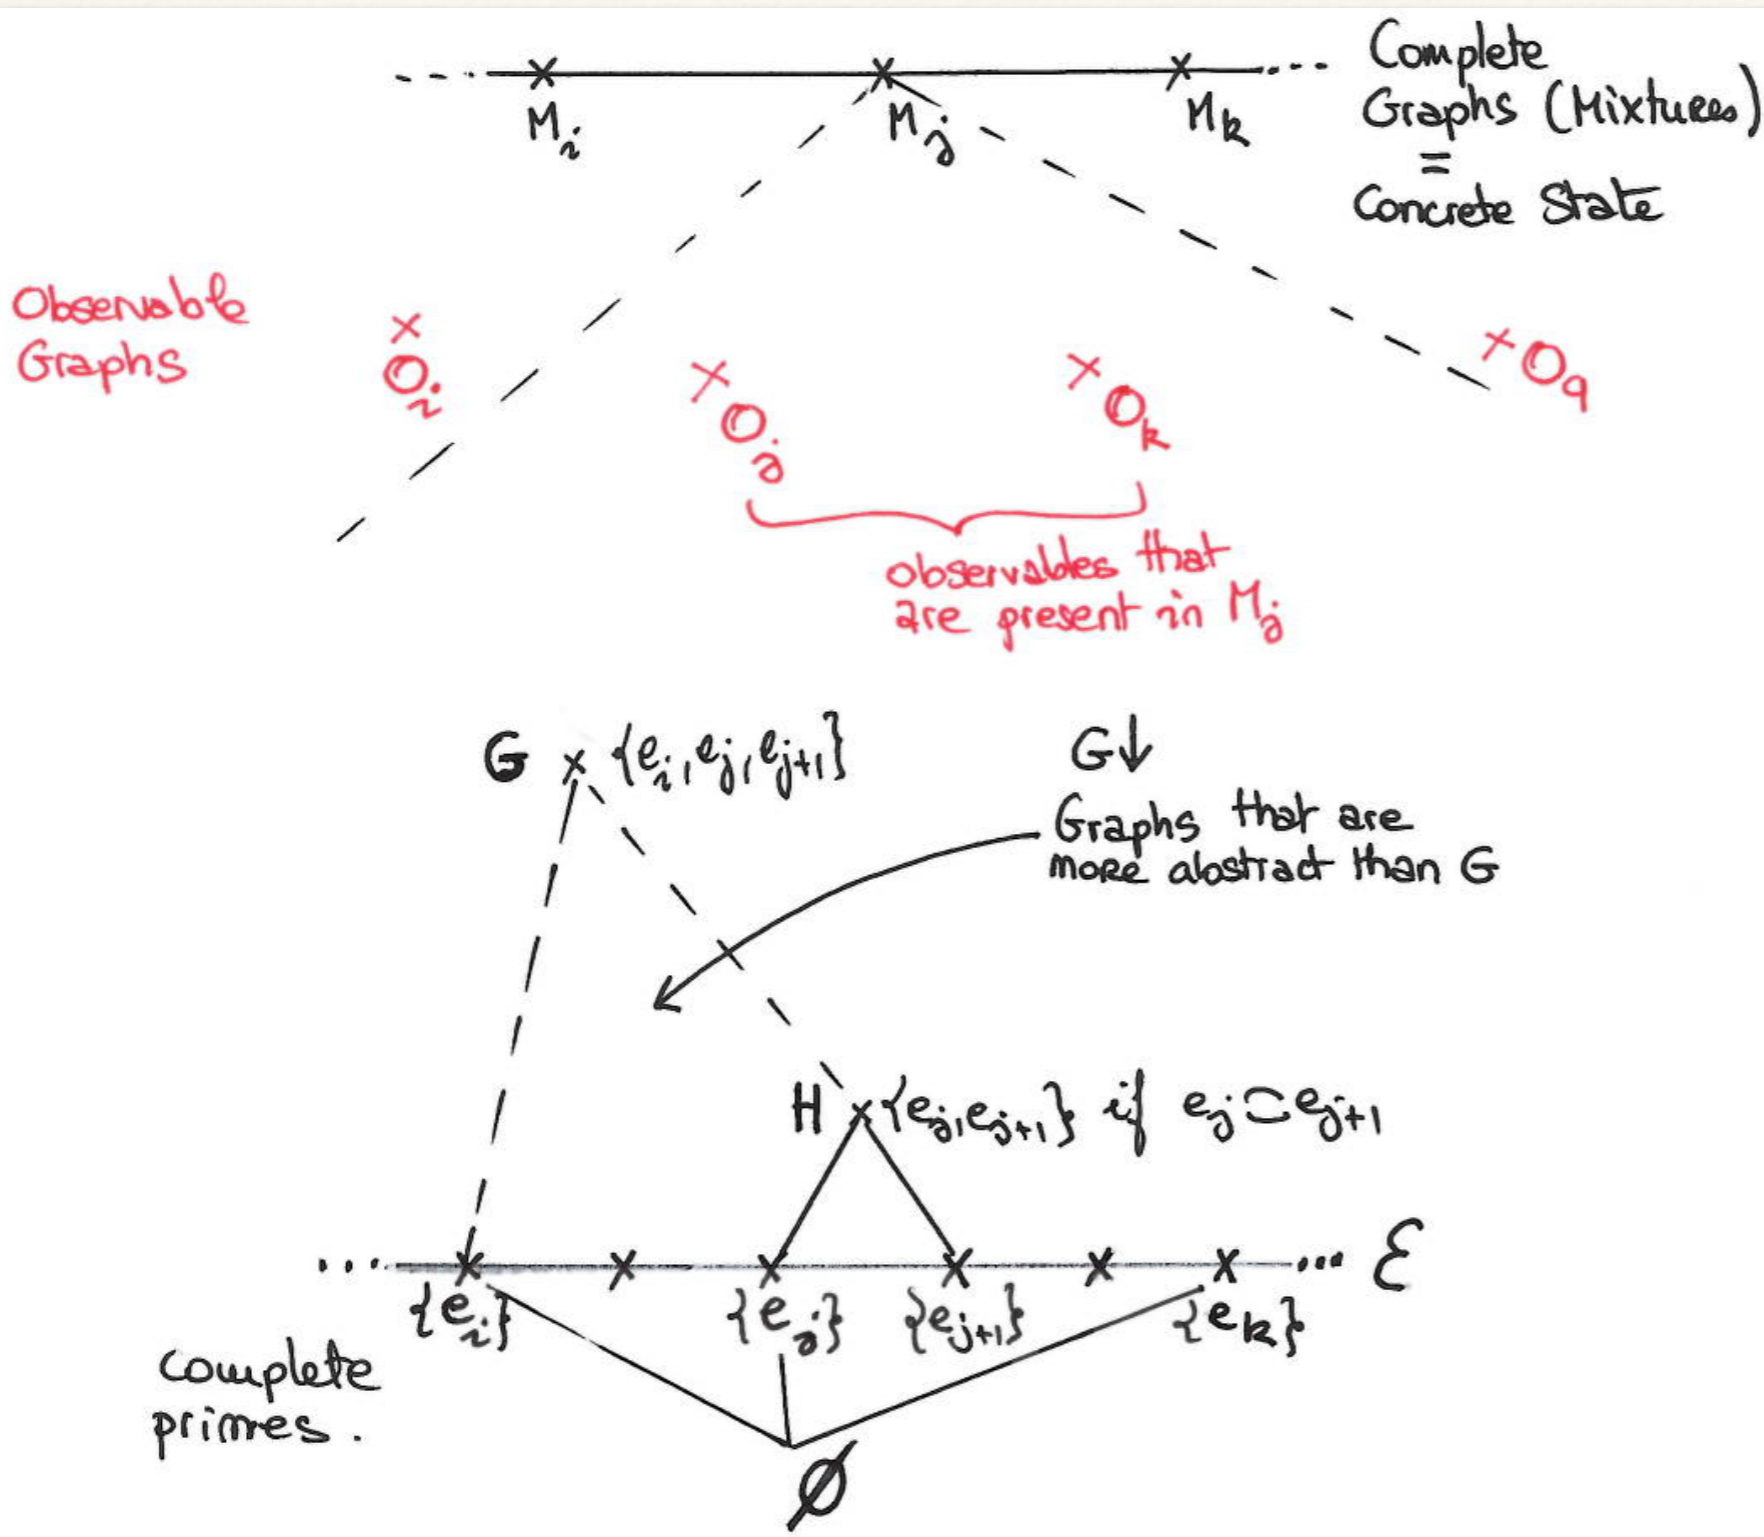 Complete
Graphs (Mixtures)
=
Concrete State
M_i
M_j
M_k
Observable
Graphs
O_i
O_j
O_k
O_q
observables that
are present in M_j
G {e_i, e_j, e_{j+1}}
G↓
Graphs that are
more abstract than G
H {e_j, e_{j+1}} if e_j ⌢⌣ e_{j+1}
... ... ℰ
{e_i} {e_j} {e_{j+1}} {e_k}
complete
primes.
∅